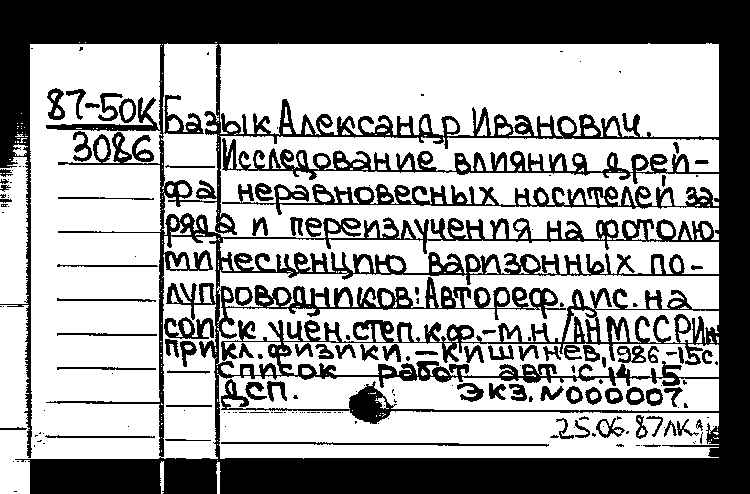 87-50К
3086
Базык, Александр Иванович.
Исследование влияния дрей-
фа неравновесных носителей за-
ряда и переизлучения на фотолю-
минесценцию варизонных по-
лупроводников: Автореф. дис. на
соиск. учен. степ. к.ф.-м.н. /АН МССР, Ин-т
прикл. физики. - Кишинев, 1986. - 15 с.
Список работ авт.: с. 14-15.
ДСП. Экз. N000007.
25.06.87